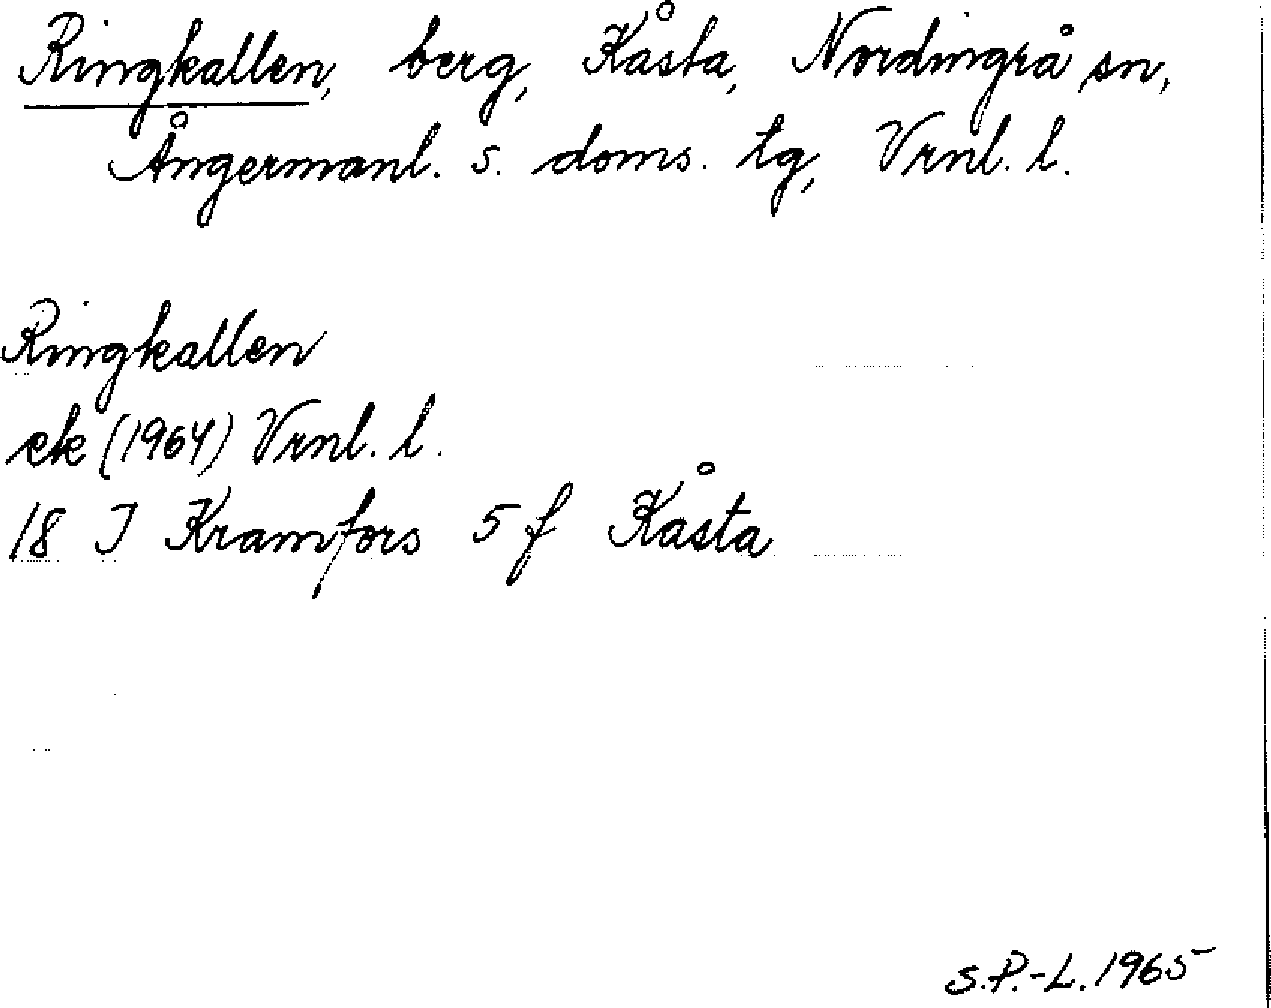 Ringkallen, berg, Kåsta, Nordingrå sn,
Ångermanl. s. doms. tg, Vrnl. l.
Ringkallen
ek (1964) Vrnl. l.
18 I Kramfors 5 f Kåsta
S.P.-L. 1965